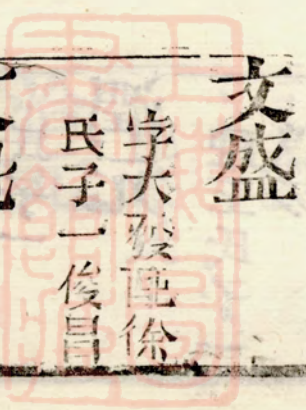 文盛
字大發配徐
氏子一俊昌